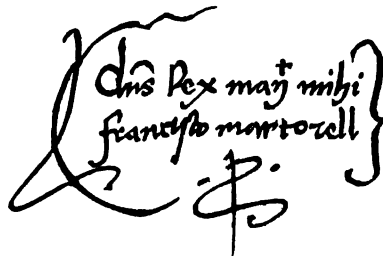 dns Rex man mihi
francisco martorell